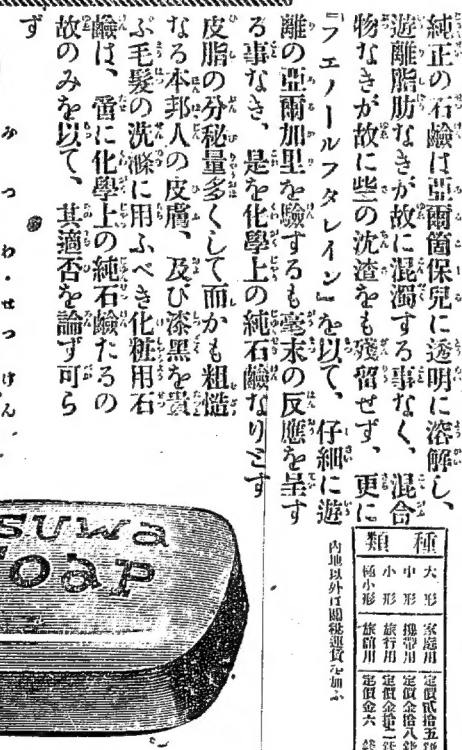 純正の石鹼は亞爾箇保兒に透明に溶解し、
遊離脂肪なきが故に混濁する事なく、混合
物なきが故に些の沈渣をも殘留せず、更に
『フエノールフタレイン』を以て、仔細に遊
離の亞爾加里を驗するも毫末の反應を呈す
る事なき、是を化學上の純石鹼なりとす
皮脂の分秘量多くして而かも粗糙
なる本邦人の皮膚、及び漆黑を貴
ぶ毛髮の洗滌に用ふべき化粧用石
鹼は、啻に化學上の純石鹼たるの
故のみを以て、其適否を論ず可ら
ず
みつわ・せつけん
種類
大形 家庭用 定價貳拾五錢
中形 攜帶用 定價金拾八錢
小形 旅行用 定價金拾二錢
極小形 旅舘用 定價金六錢
内地以外は關稅運賃を加ふ
suwa
soap